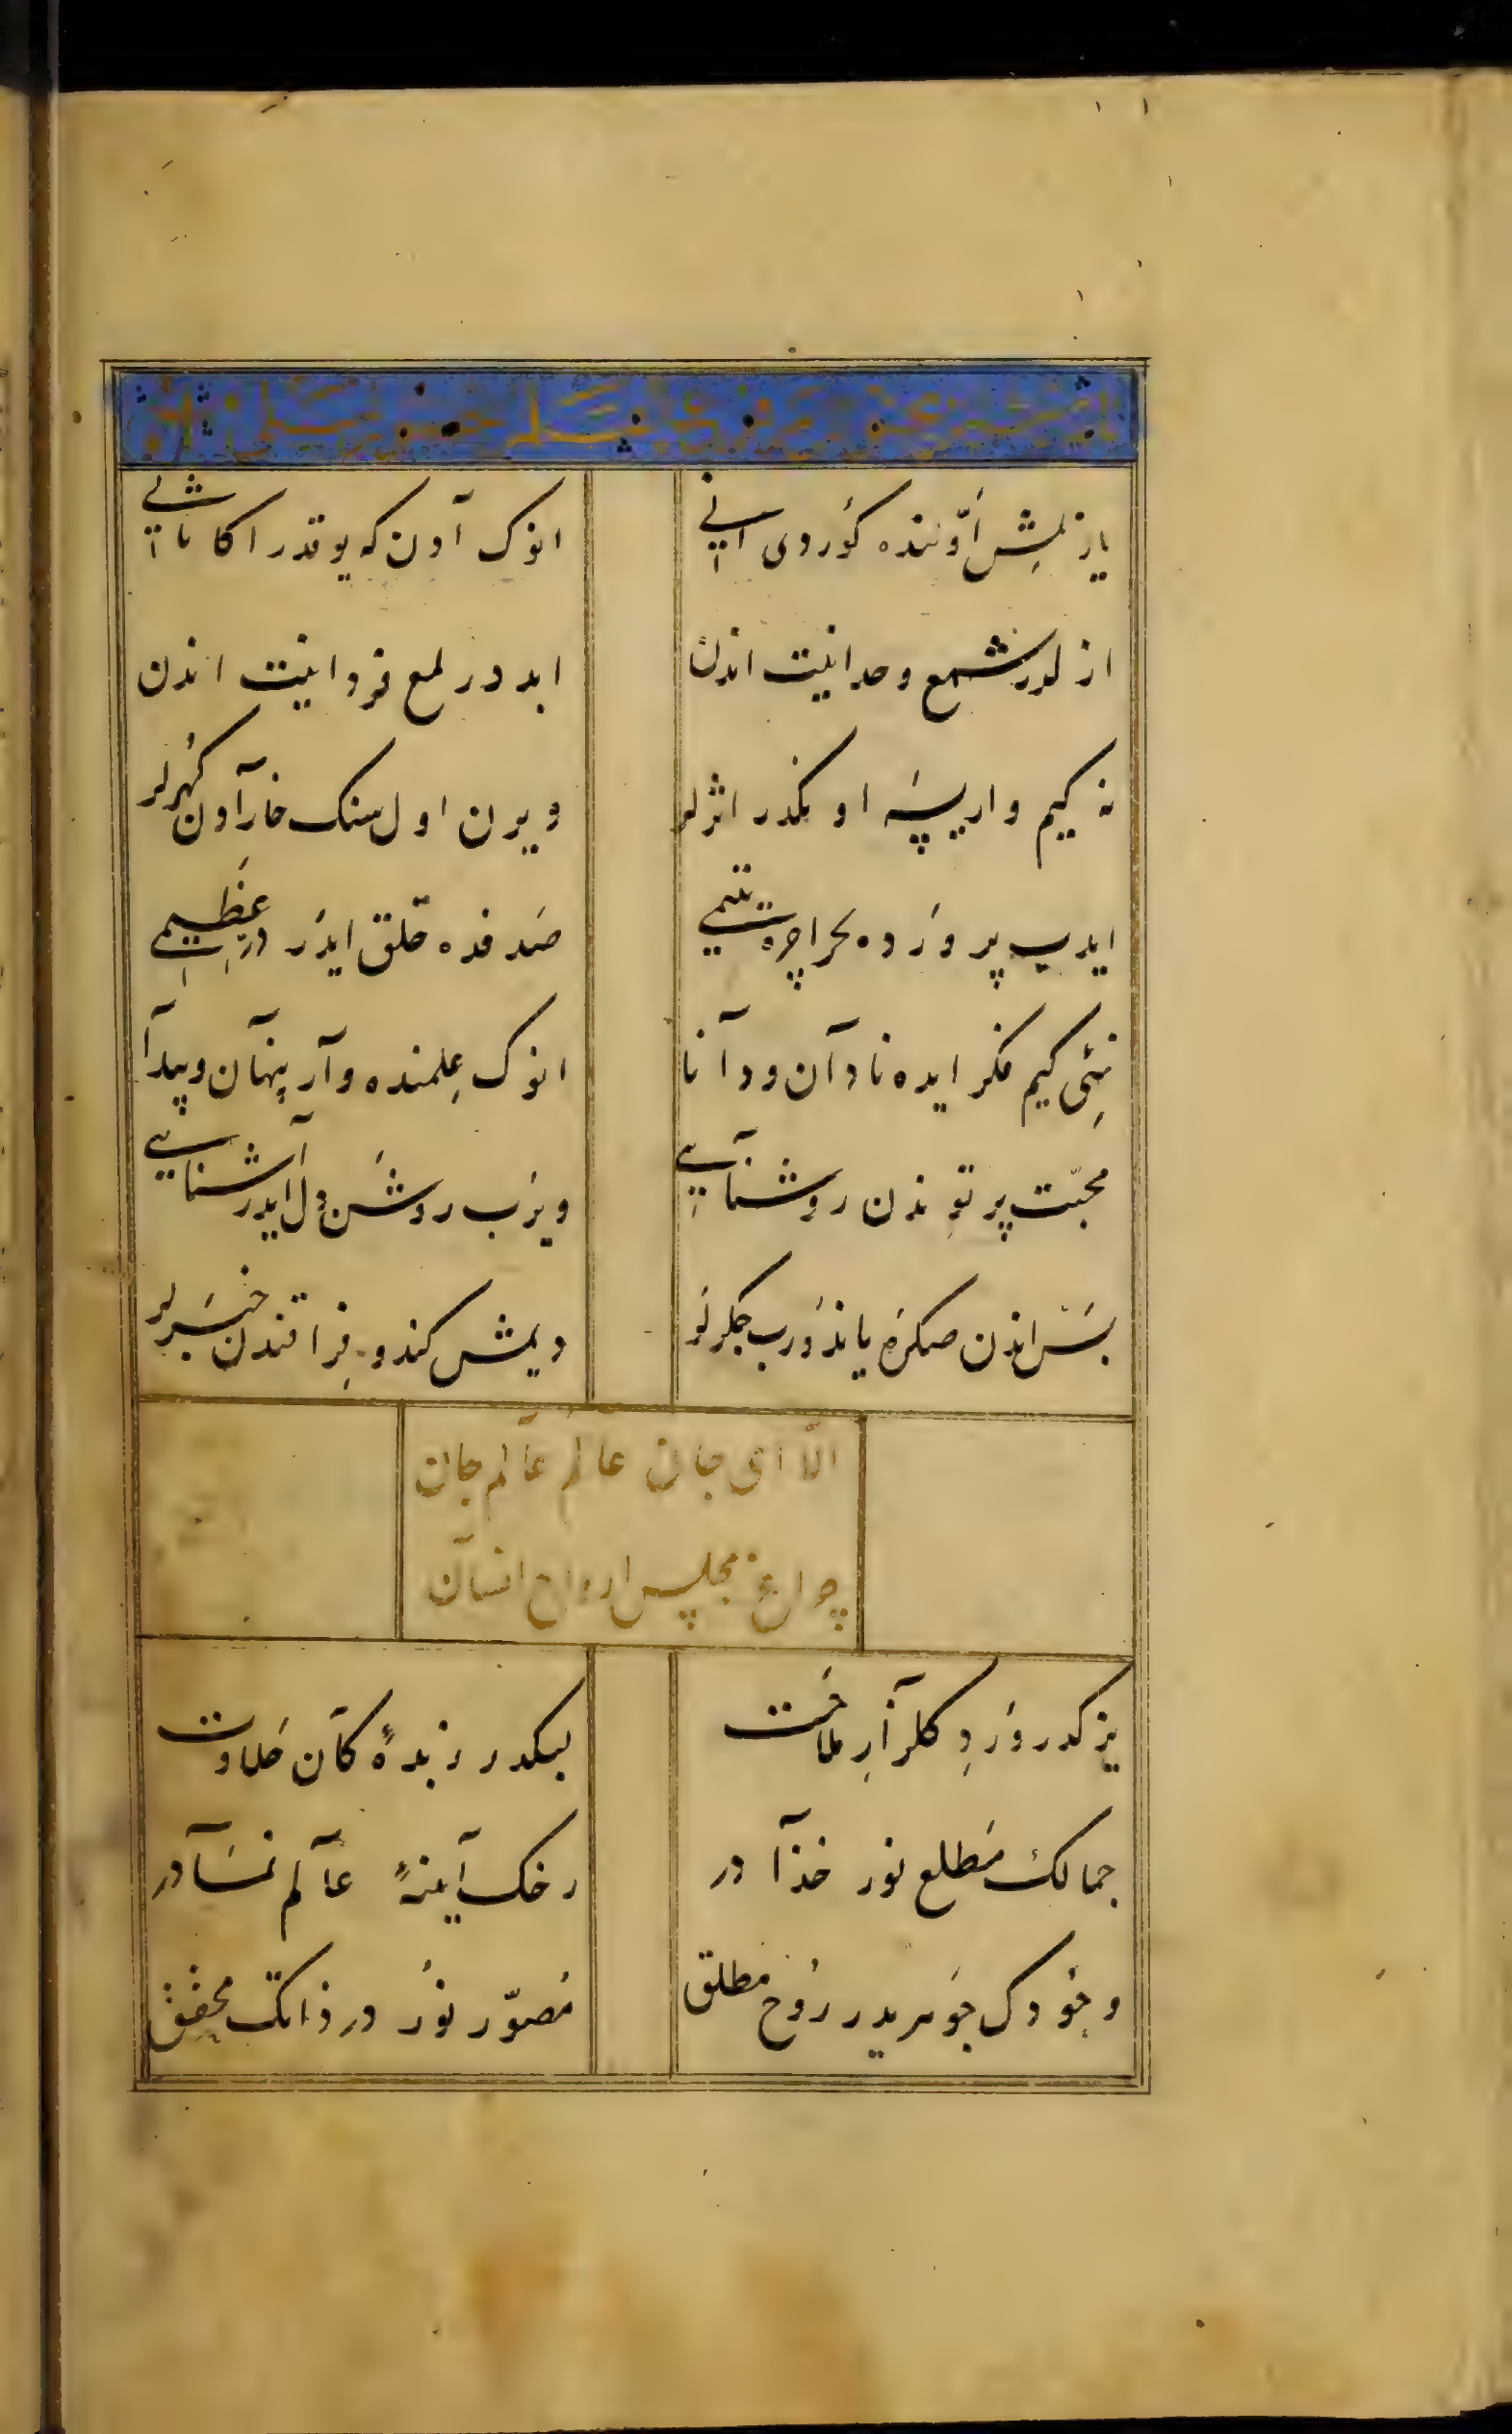 یازلمش اوّننده کوردی آنی
انوک آدن که یوقدر اکا ثانی
ازلدر شمع وحدانیت اندن
ابد در لمع فردانیت اندن
نه کیم واریسه اوکدر اثرلر
ویرن اول سنک خارآدن کهرلر
ایدیب پرورده بحر اچره یتیمی
صدفده خلق ایدر در عظیمی
نئی کیم فکر ایده نادآن ودآنا
انوک علمنده وآر پنهآن وپیدآ
محبّت پرتوندن روشنآیی
ویرب روشن دل ایدر آشنایی
بس اندن صکره یاندورب جکرلر
دیمش کندو فراقندن خبرلر
الا ای جان عالم عالم جان
چراغ مجلس ارواح انسان
یزکدر ورد کلزآر ملاحت
لبکدر زبدهٔ کآن حلاوت
جمالک مطلع نور خدآ در
رخک آینهٔ عآلم نمآ در
وجودک جوهریدر روح مطلق
مصوّر نور در ذاتک محقق